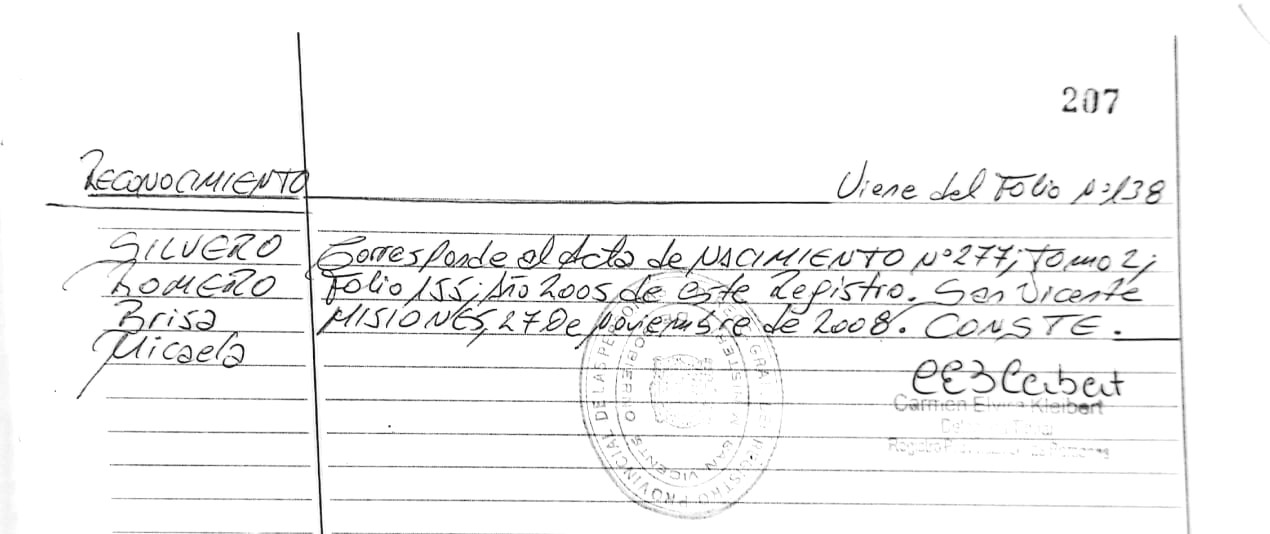 207
RECONOCIMIENTO
Viene del Folio Nº 138
SILVERO
ROMERO
Brisa
Micaela
Corresponde al Acta de NACIMIENTO Nº 277; Tomo 2;
Folio 155; Año 2005 de este Registro. San Vicente
MISIONES, 27 De Noviembre de 2008. CONSTE.
Carmen Elvira Kleibert
REGISTRO PROVINCIAL DE LAS
SAN VICENTE